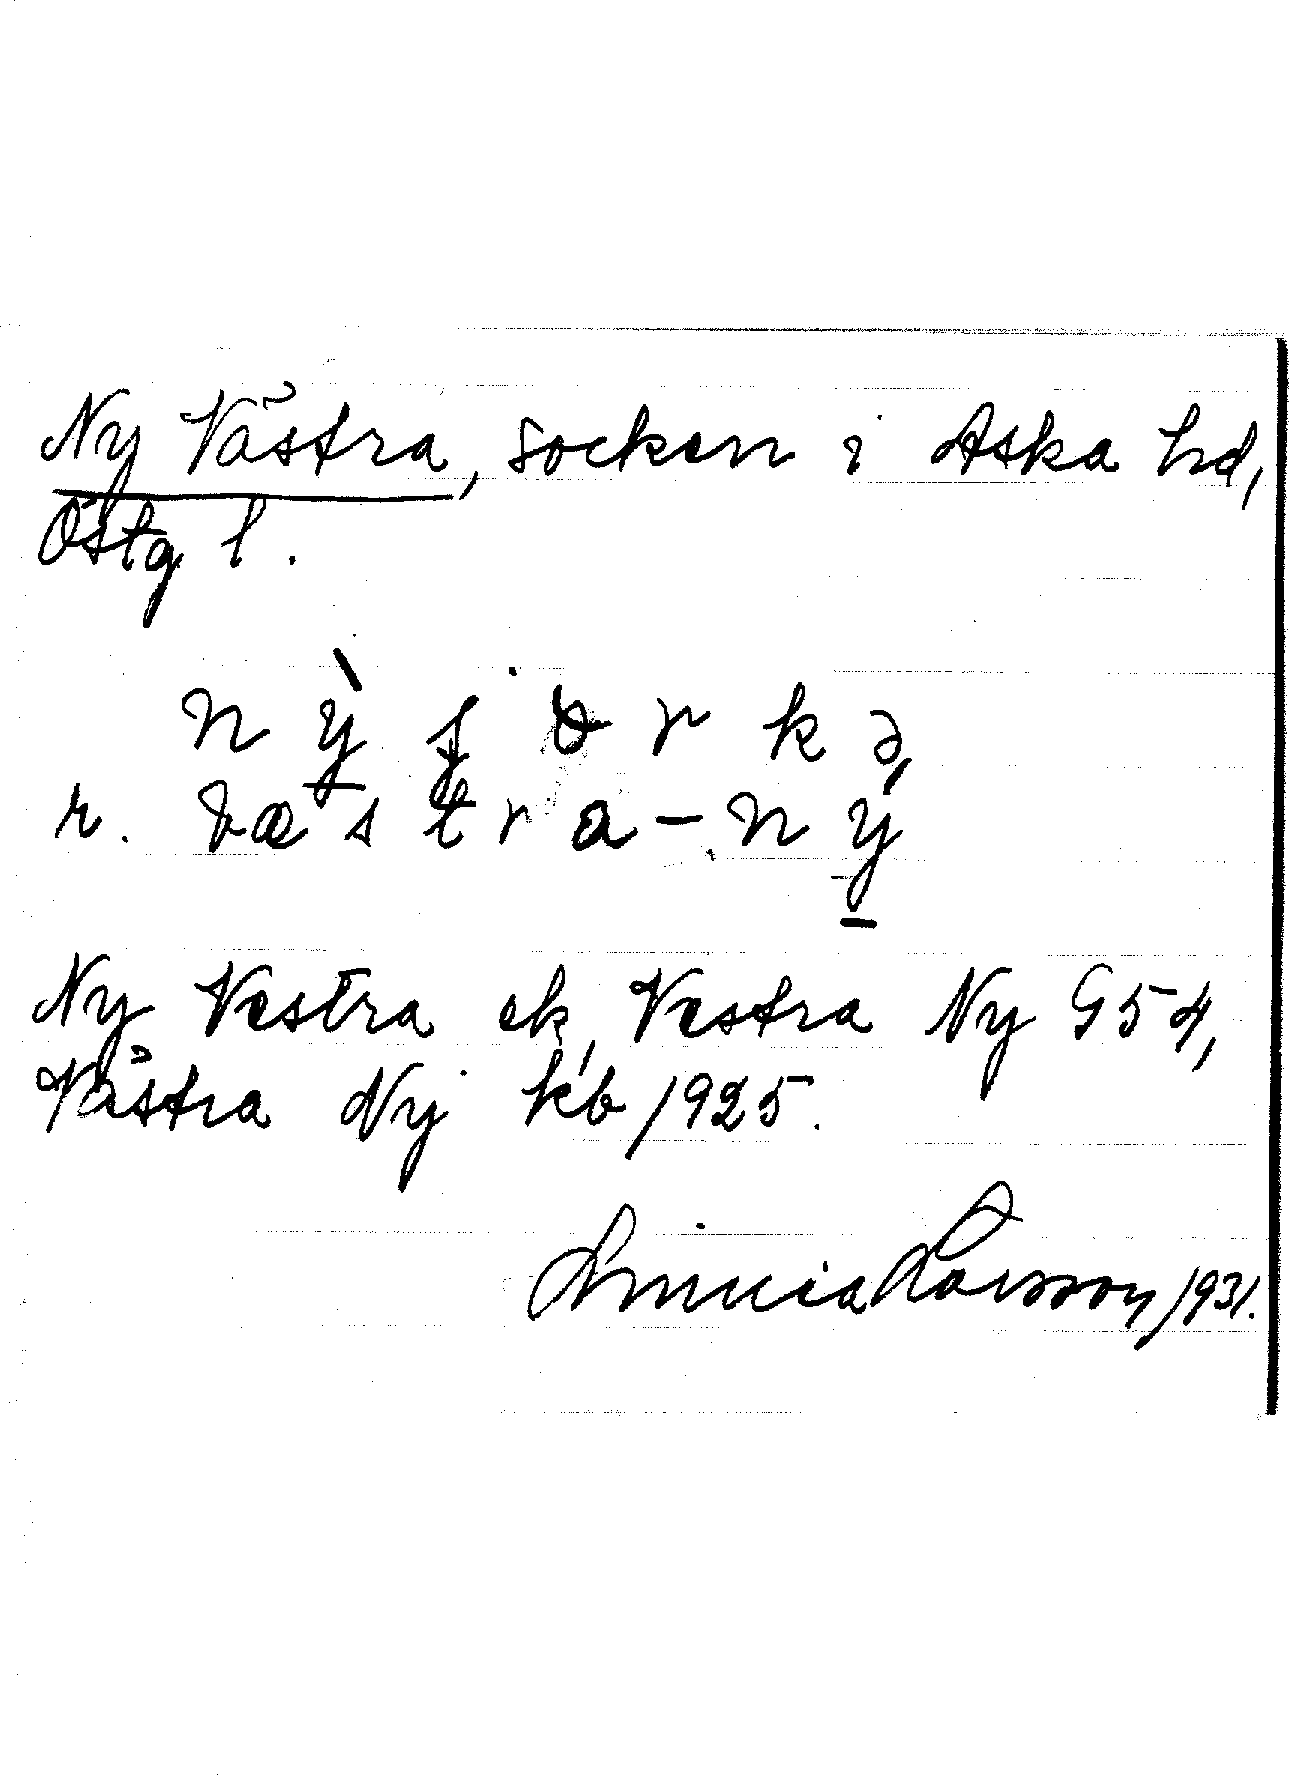 Ny Västra, socken i Aska hd,
Östg l.
r. væstra-ny
Ny Vestra ek, Vestra Ny G54,
Västra Ny kb 1925.
Larsson 1931.